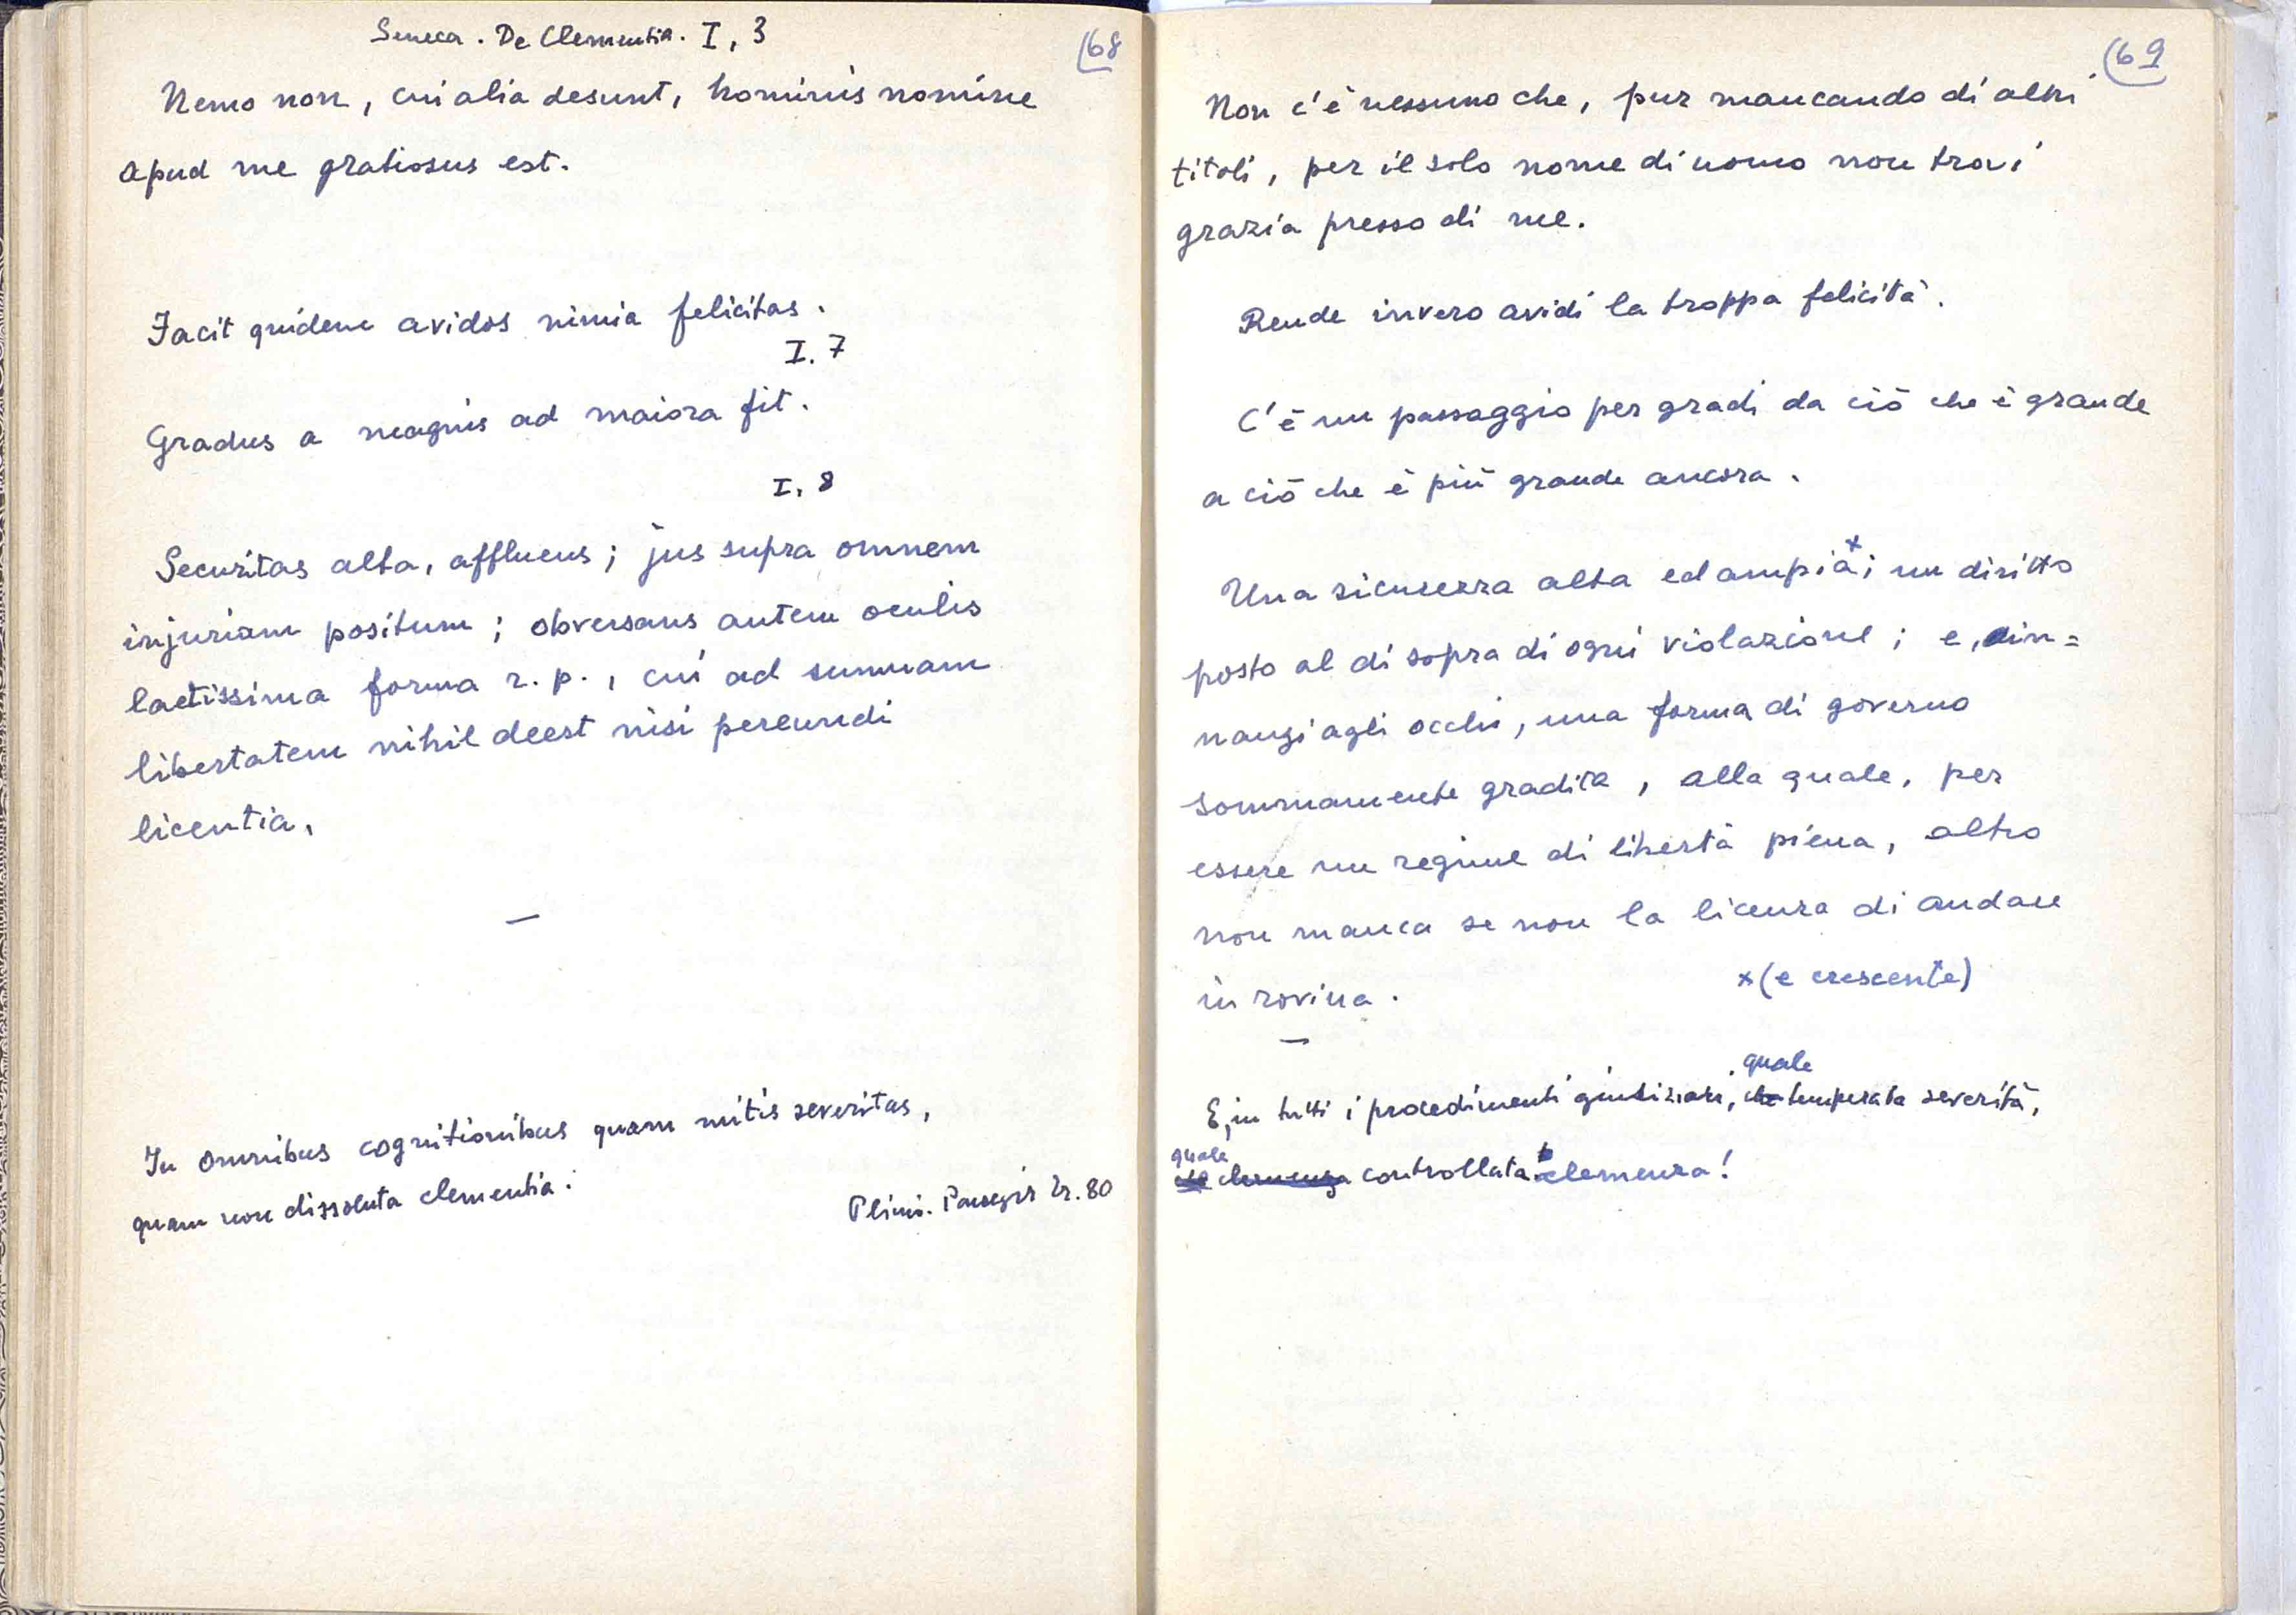 Seneca. De Clementia. I, 3
(68
Nemo non, cui alia desunt, hominis nomine
apud me gratiosus est.
Facit quidem avidos nimia felicitas.
I. 7
Gradus a magnis ad maiora fit.
I, 8
Securitas alta, affluens; jus supra omnem
injuriam positum; obversans autem oculis
laetissima forma r. p., cui ad summam
libertatem nihil deest nisi pereundi
licentia.
—
In omnibus cognitionibus quam mitis severitas,
quam non dissoluta clementia:
Plinio. Panegir Tr. 80
(69
Non c'è nessuno che, pur mancando di altri
titoli, per il solo nome di uomo non trovi
grazia presso di me.
Rende invero avidi la troppa felicità.
C'è un passaggio per gradi da ciò che è grande
a ciò che è più grande ancora.
Una sicurezza alta ed ampia x; un diritto
posto al di sopra di ogni violazione; e, din=
nanzi agli occhi, una forma di governo
sommamente gradita, alla quale, per
essere un regime di libertà piena, altro
non manca se non la licenza di andare
in rovina.
x (e crescente)
—
quale
E, in tutti i procedimenti giudiziari, che temperata severità,
quale
che clemenza controllata clemenza!